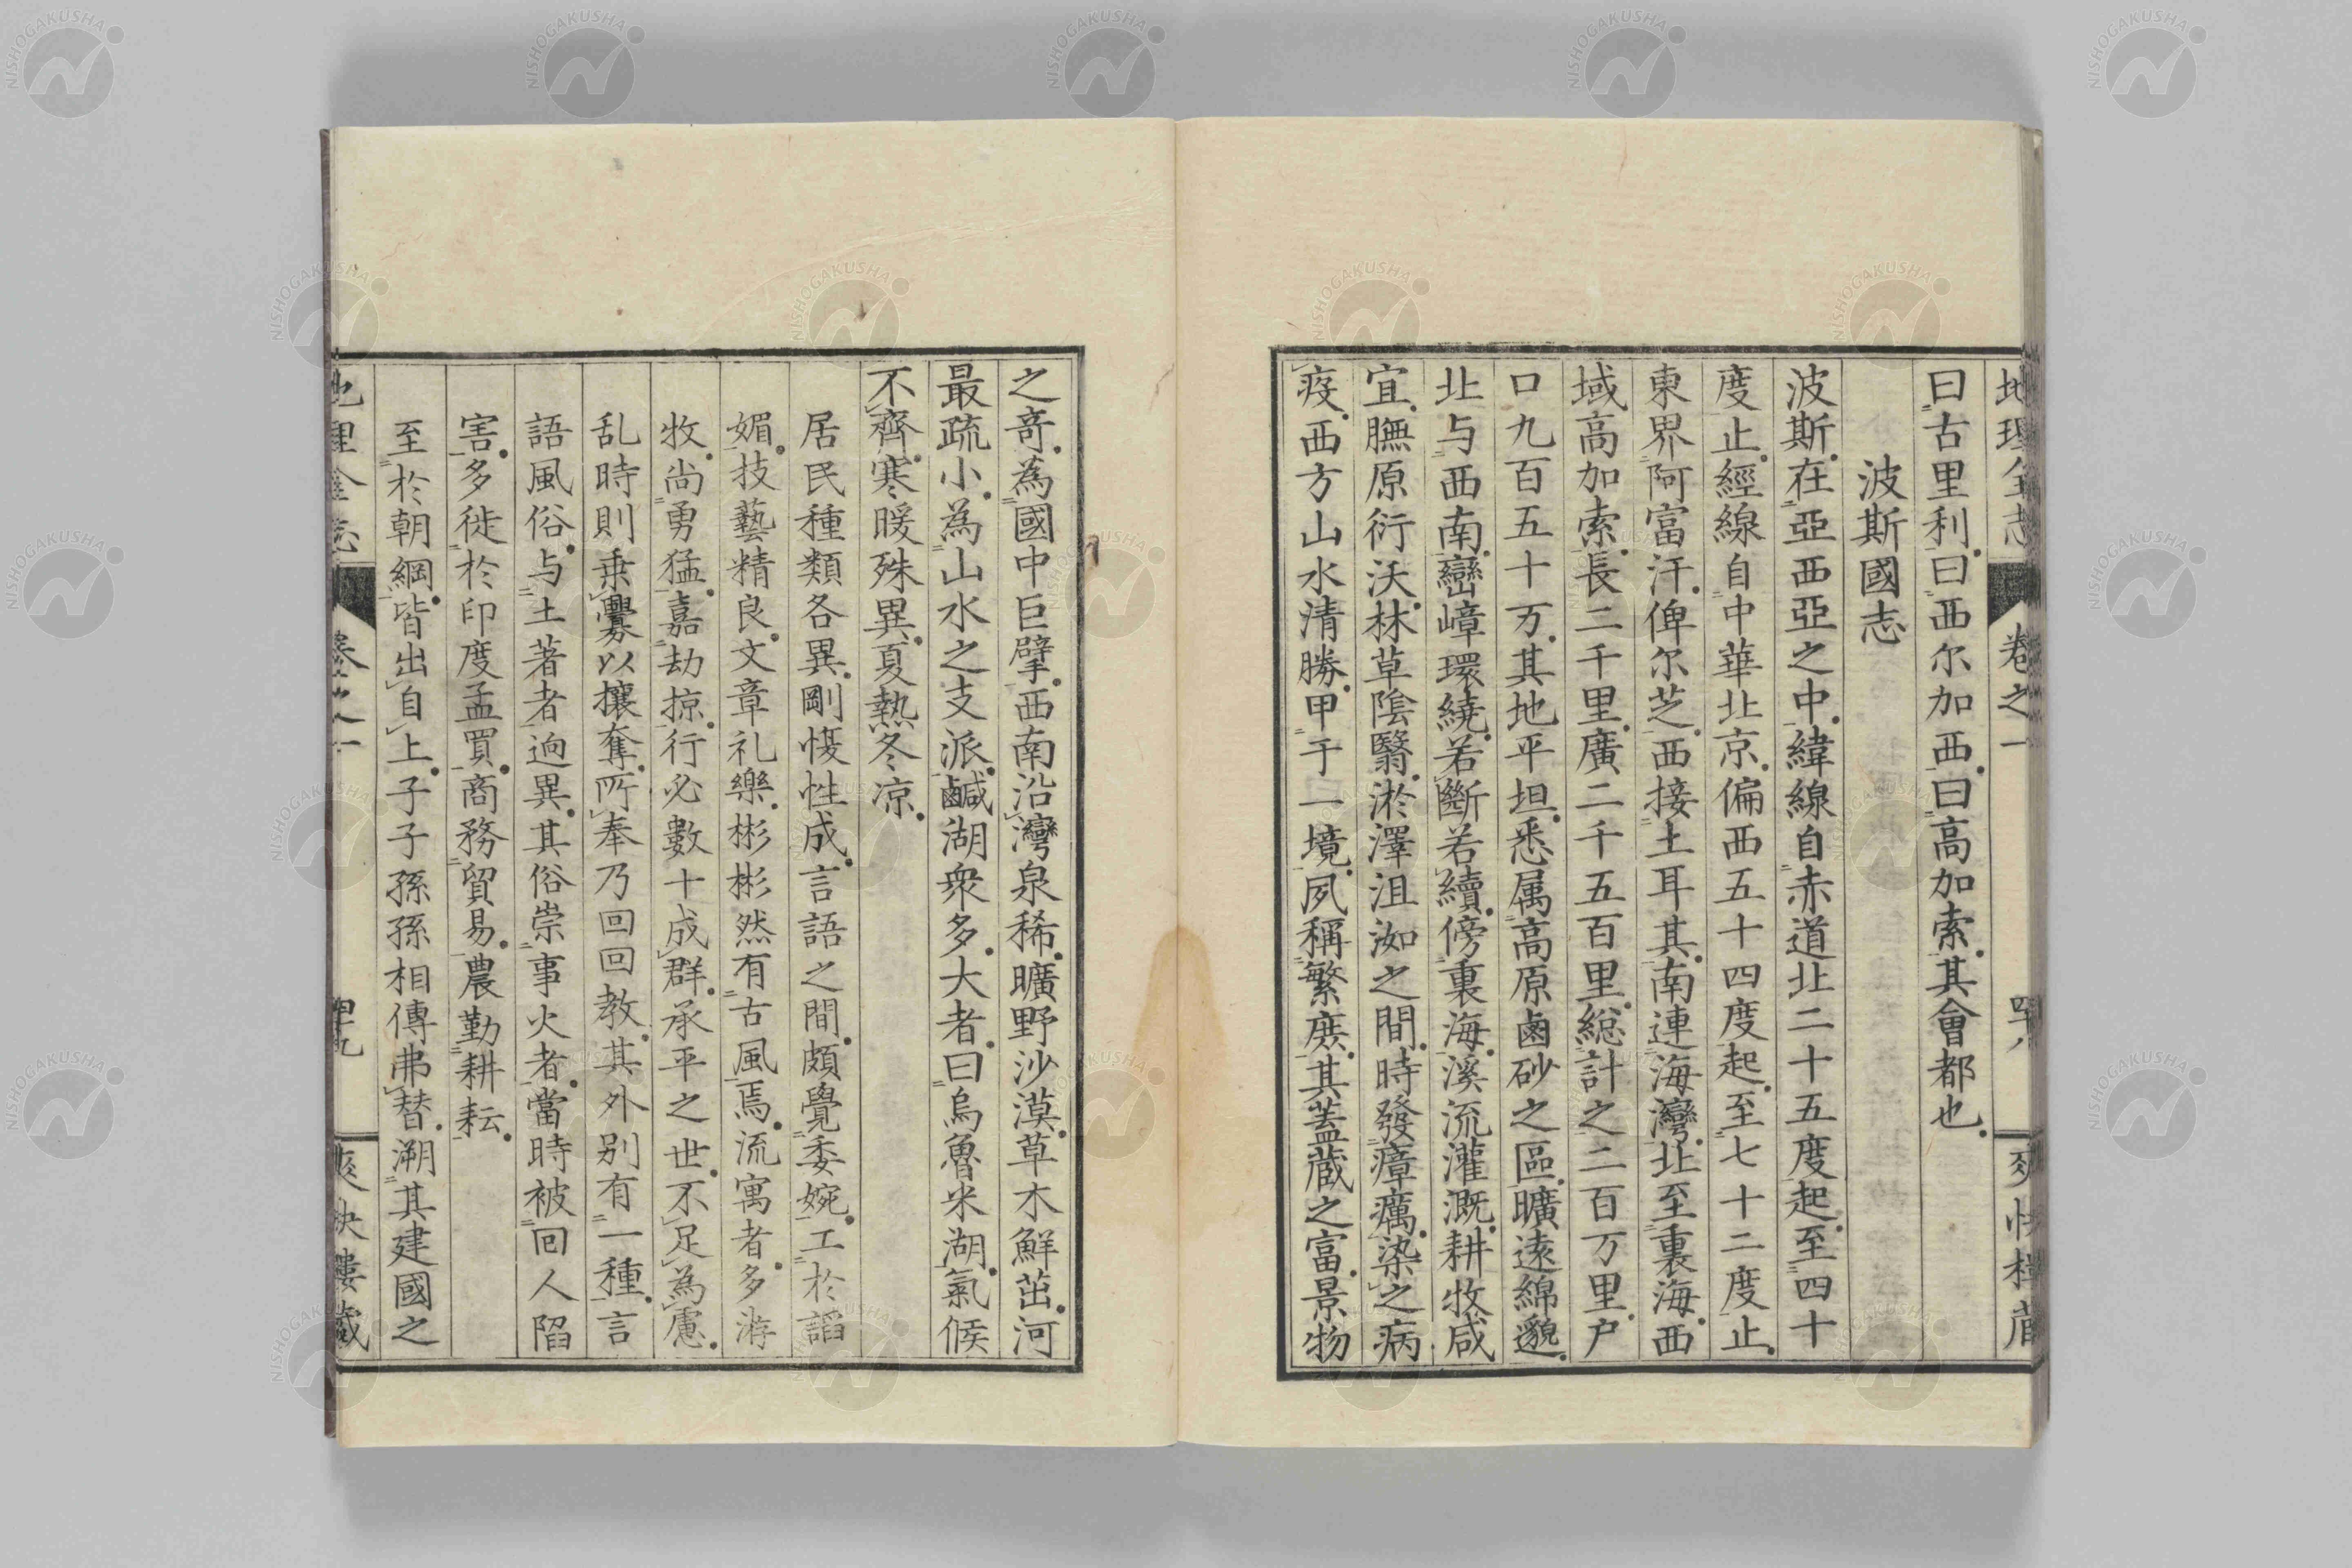 地理全志 卷之一 四十八 爽快樓藏
曰古里利曰西尔加西曰高加索其會都也
波斯國志
波斯在亞西亞之中緯線自赤道北二十五度起至四十
度止經線自中華北京偏西五十四度起至七十二度止
東界阿富汗俾尔芝西接土耳其南連海灣北至裏海西
域高加索長二千里廣二千五百里総計之二百万里户
口九百五十万其地平坦悉属高原鹵砂之區曠遠綿邈
北与西南巒嶂環繞若斷若續傍裏海溪流灌溉耕牧咸
宜膴原衍沃林草陰翳淤澤沮洳之間時發瘴癘染之病
疫西方山水清勝甲于一境夙稱繁庶其蓋藏之富景物
之竒為國中巨擘西南沿灣泉稀曠野沙漠草木鮮茁河
最疏小為山水之支派鹹湖衆多大者曰烏魯米湖氣候
不齊寒暖殊異夏熱冬凉
居民種類各異剛愎性成言語之間頗覺委婉工於謟
媚技藝精良文章礼樂彬彬然有古風焉流寓者多游
牧尚勇猛嘉劫掠行必數十成群承平之世不足為慮
乱時則乗釁以攘奪所奉乃回回教其外別有一種言
語風俗与土著者逈異其俗崇事火者當時被回人陷
害多徙於印度孟買商務貿易農勤耕耘
至於朝綱皆出自上子子孫孫相傳弗替溯其建國之
地理全志 卷之一 四十九 爽快樓藏